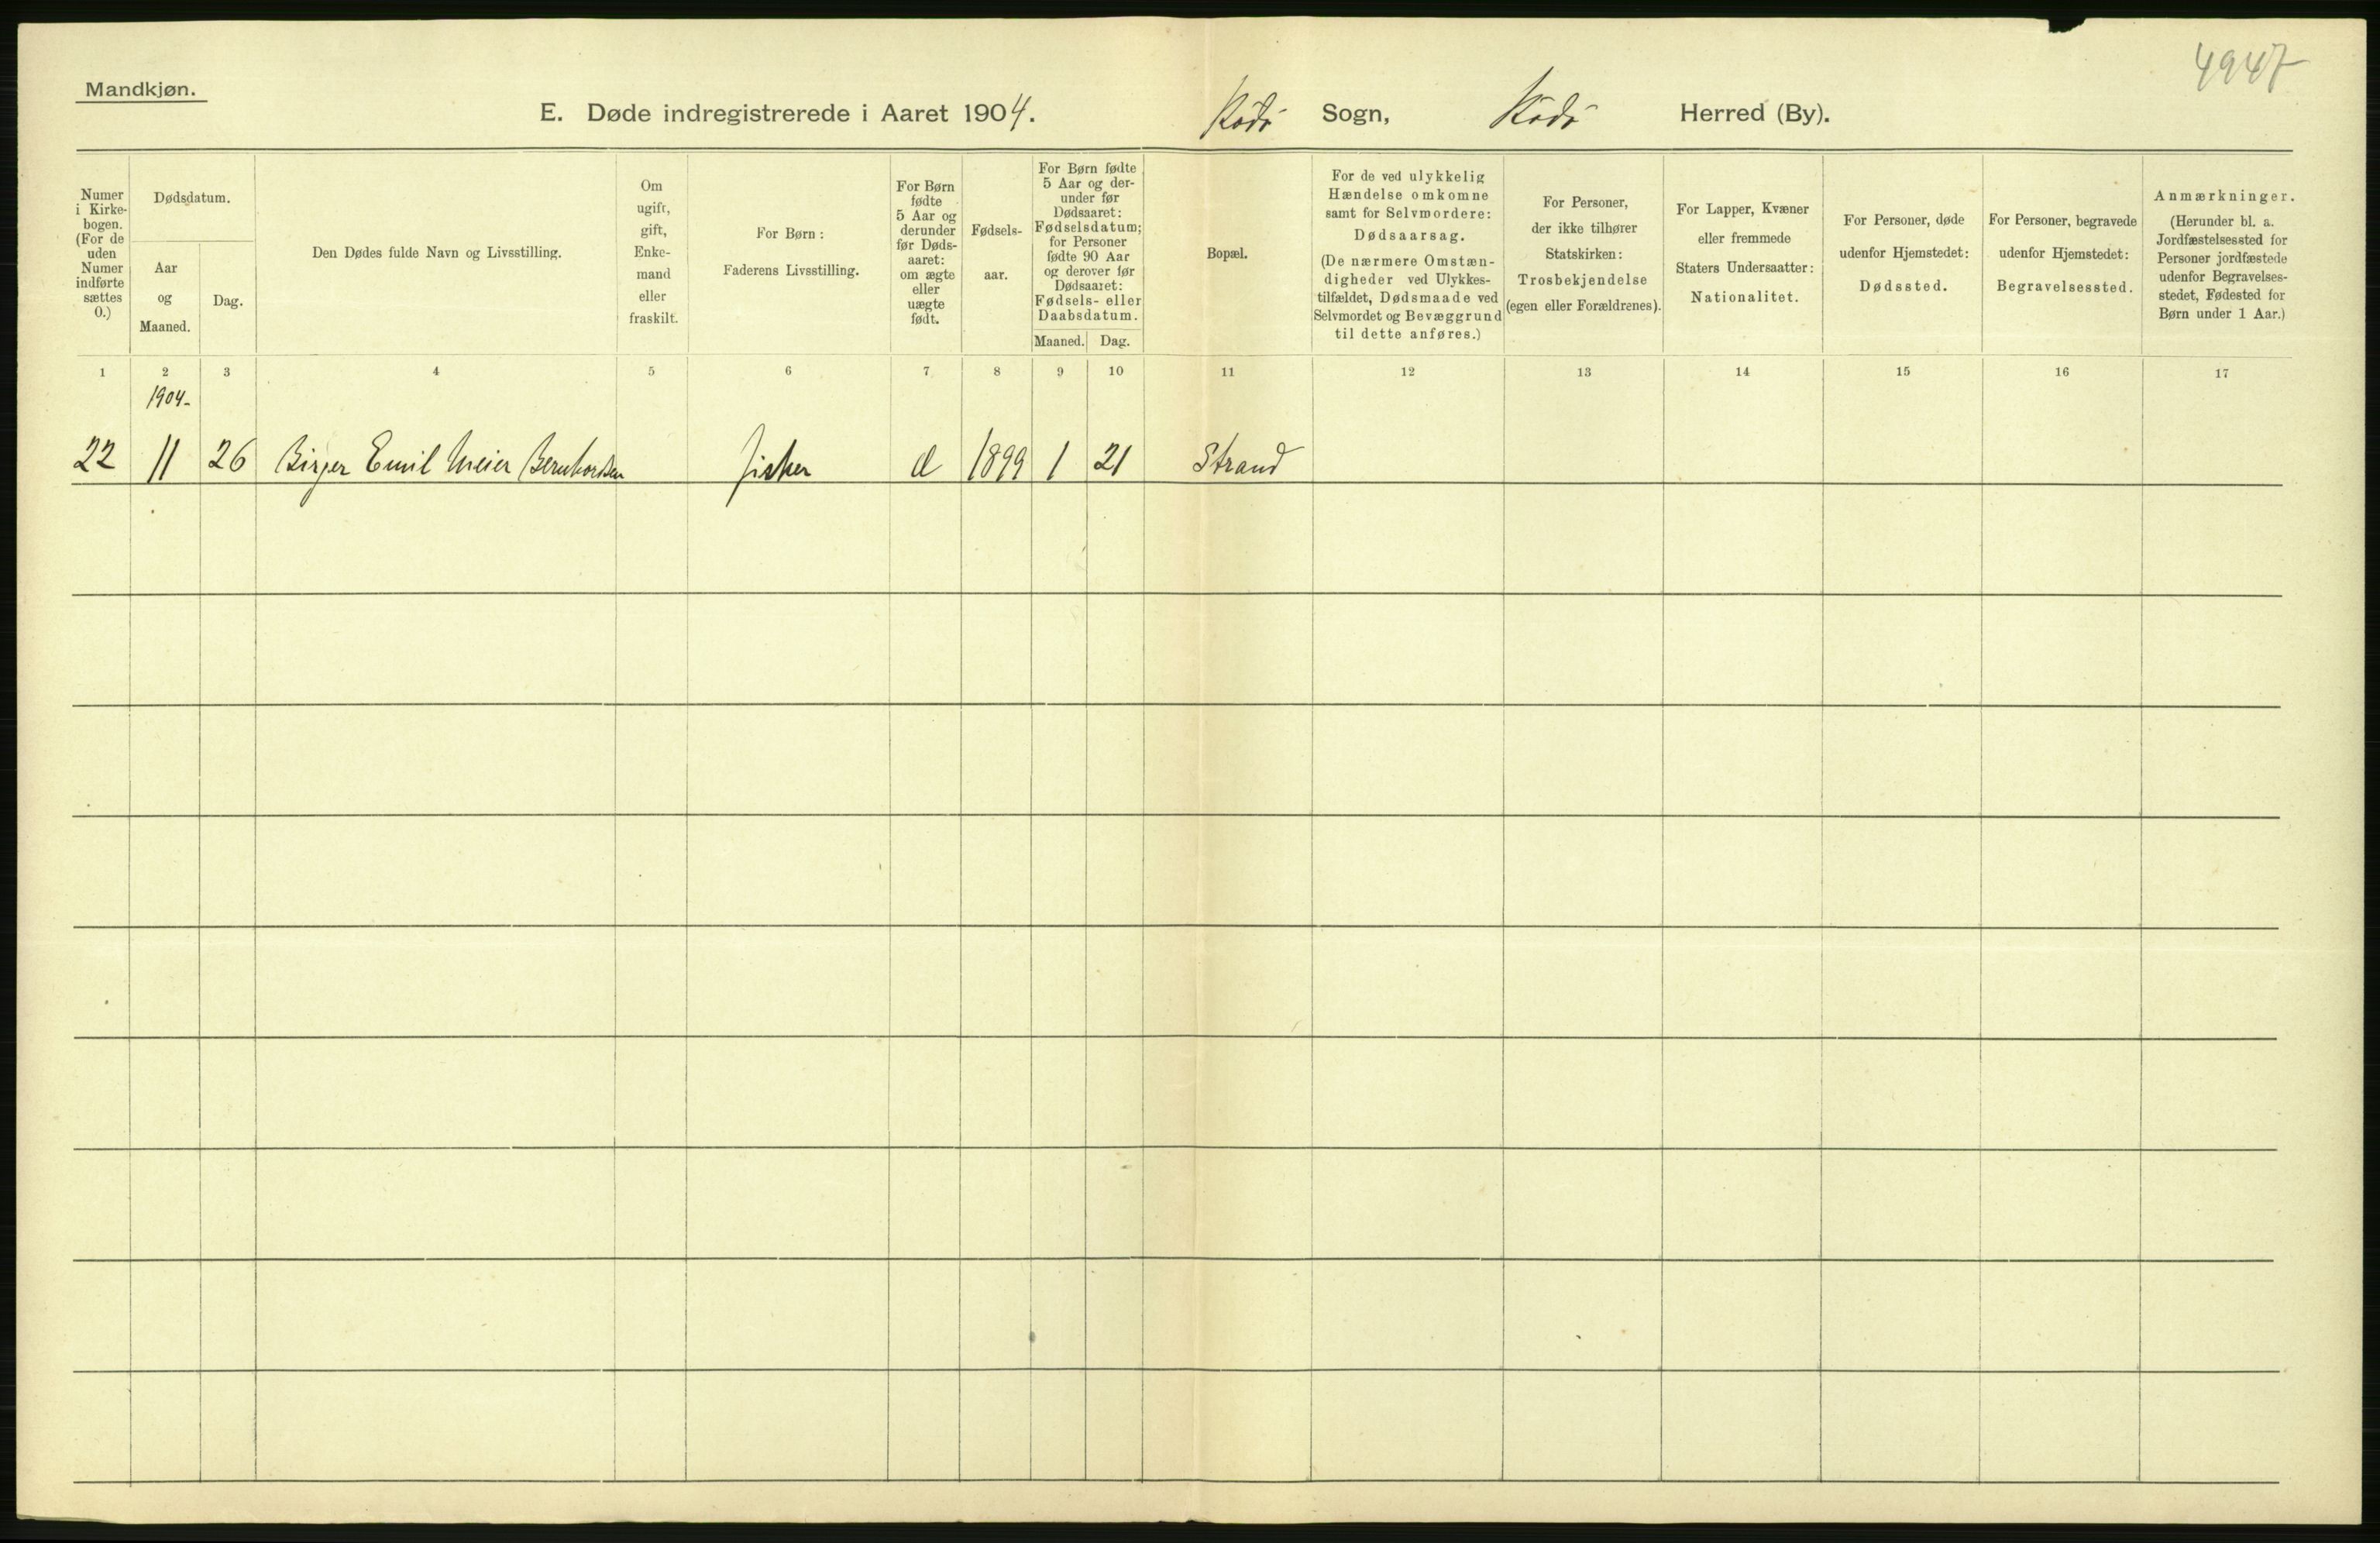 4947
Mandkjøn.
E. Døde indregistrerede i Aaret 1904. Rödö Sogn, Rödö Herred (By).
Numer i Kirke-bogen. (For de uden Numer indførte sættes 0.)
Dødsdatum.
Aar og Maaned.
Dag.
Den Dødes fulde Navn og Livsstilling.
Om ugift, gift, Enke-mand eller fraskilt.
For Børn: Faderens Livsstilling.
For Børn fødte 5 Aar og derunder før Døds-aaret: om ægte eller uægte født.
Fødsels-aar.
For Børn fødte 5 Aar og der-under før Dødsaaret: Fødselsdatum; for Personer fødte 90 Aar og derover før Dødsaaret: Fødsels- eller Daabsdatum.
Maaned. Dag.
Bopæl.
For de ved ulykkelig Hændelse omkomne samt for Selvmordere: Dødsaarsag. (De nærmere Omstæn-digheder ved Ulykkes-tilfældet, Dødsmaade ved Selvmordet og Bevæggrund til dette anføres.)
For Personer, der ikke tilhører Statskirken: Trosbekjendelse (egen eller Forældrenes).
For Lapper, Kvæner eller fremmede Staters Undersaatter: Nationalitet.
For Personer, døde udenfor Hjemstedet: Dødssted.
For Personer, begravede udenfor Hjemstedet: Begravelsessted.
Anmærkninger. (Herunder bl. a. Jordfæstelsessted for Personer jordfæstede udenfor Begravelses-stedet, Fødested for Børn under 1 Aar.)
1 2 3 4 5 6 7 8 9 10 11 12 13 14 15 16 17
1904-
22 11 26 Birger Emil Meier Bernhardsen fisker 1899 1 21 Strand